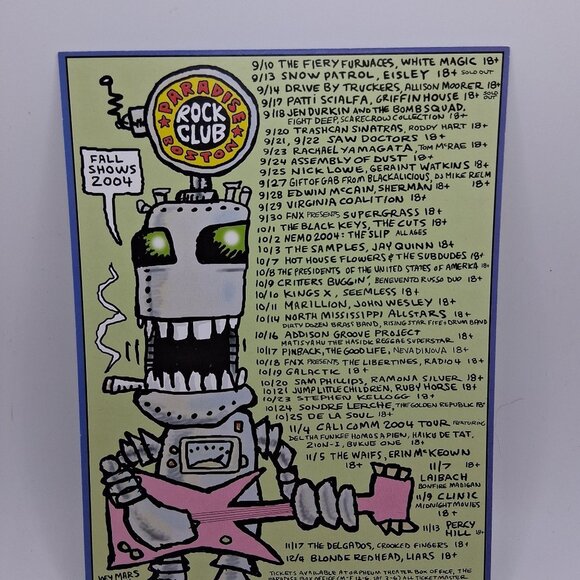 PARADISE
ROCK
CLUB
BOSTON
FALL
SHOWS
2004
9/10 THE FIERY FURNACES, WHITE MAGIC 18+
9/13 SNOW PATROL, EISLEY 18+ SOLD OUT
9/14 DRIVE BY TRUCKERS, ALLISON MOORER 18+
9/17 PATTI SCIALFA, GRIFFIN HOUSE 18+ SOLD OUT
9/18 JEN DURKIN AND THE BOMB SQUAD,
FIGHT DEEP, SCARECROW COLLECTION 18+
9/20 TRASHCAN SINATRAS, RODDY HART 18+
9/21, 9/22 SAW DOCTORS 18+
9/23 RACHAEL YAMAGATA, TOM McRAE 18+
9/24 ASSEMBLY OF DUST 18+
9/25 NICK LOWE, GERAINT WATKINS 18+
9/27 GIFT OF GAB FROM BLACKALICIOUS, DJ MIKE RELM 18+
9/28 EDWIN McCAIN, SHERMAN 18+
9/29 VIRGINIA COALITION 18+
9/30 FNX PRESENTS SUPERGRASS 18+
10/1 THE BLACK KEYS, THE CUTS 18+
10/2 NEMO 2004: THE SLIP ALL AGES
10/3 THE SAMPLES, JAY QUINN 18+
10/7 HOT HOUSE FLOWERS & THE SUBDUDES 18+
10/8 THE PRESIDENTS OF THE UNITED STATES OF AMERICA 18+
10/9 CRITTERS BUGGIN', BENEVENTO RUSSO DUO 18+
10/10 KINGS X, SEEMLESS 18+
10/11 MARILLION, JOHN WESLEY 18+
10/14 NORTH MISSISSIPPI ALLSTARS 18+
DIRTY DOZEN BRASS BAND, RISING STAR FIFE & DRUM BAND
10/16 ADDISON GROOVE PROJECT
MATISYAHU THE HASIDIC REGGAE SUPERSTAR 18+
10/17 PINBACK, THE GOOD LIFE, NEVA DINOVA 18+
10/18 FNX PRESENTS THE LIBERTINES, RADIO 4 18+
10/19 GALACTIC 18+
10/20 SAM PHILLIPS, RAMONA SILVER 18+
10/21 JUMP LITTLE CHILDREN, RUBY HORSE 18+
10/23 STEPHEN KELLOGG 18+
10/24 SONDRE LERCHE, THE GOLDEN REPUBLIC 18+
10/25 DE LA SOUL 18+
11/4 CALI COMM 2004 TOUR FEATURING
DEL THA FUNKEE HOMOSAPIEN, HAIKU DE TAT,
ZION-I, BUKUE ONE 18+
11/5 THE WAIFS, ERIN McKEOWN 18+
11/7 LAIBACH 18+
BONFIRE MADIGAN
11/9 CLINIC
MIDNIGHT MOVIES
18+
11/13 PERCY
HILL 18+
11/17 THE DELGADOS, CROOKED FINGERS 18+
12/4 BLONDE REDHEAD, LIARS 18+
TICKETS AVAILABLE AT ORPHEUM THEATER BOX OFFICE, THE
WRY MARS